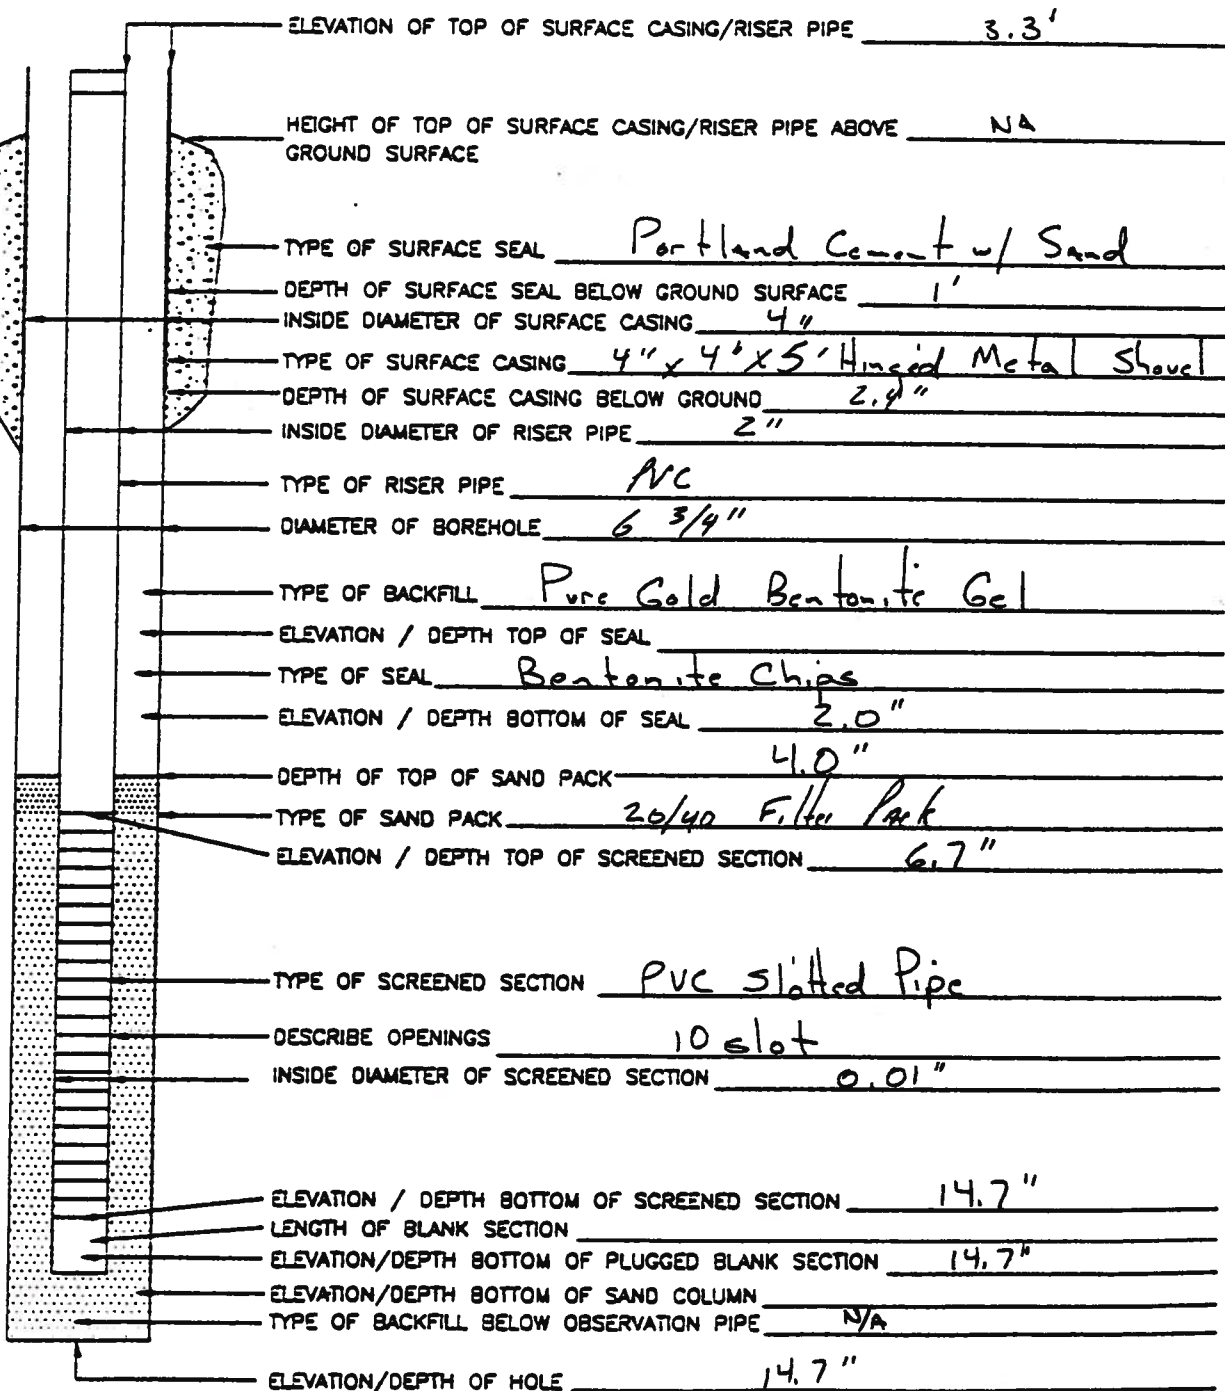 ELEVATION OF TOP OF SURFACE CASING/RISER PIPE 3.3'
HEIGHT OF TOP OF SURFACE CASING/RISER PIPE ABOVE NA
GROUND SURFACE
TYPE OF SURFACE SEAL Portland Cement w/ Sand
DEPTH OF SURFACE SEAL BELOW GROUND SURFACE 1'
INSIDE DIAMETER OF SURFACE CASING 4"
TYPE OF SURFACE CASING 4" x 4' x 5' Hinged Metal Shovel
DEPTH OF SURFACE CASING BELOW GROUND 2.4"
INSIDE DIAMETER OF RISER PIPE 2"
TYPE OF RISER PIPE PVC
DIAMETER OF BOREHOLE 6 3/4"
TYPE OF BACKFILL Pure Gold Bentonite Gel
ELEVATION / DEPTH TOP OF SEAL
TYPE OF SEAL Bentonite Chips
ELEVATION / DEPTH BOTTOM OF SEAL 2.0"
DEPTH OF TOP OF SAND PACK 4.0"
TYPE OF SAND PACK 20/40 Filter Pack
ELEVATION / DEPTH TOP OF SCREENED SECTION 6.7"
TYPE OF SCREENED SECTION PVC Slotted Pipe
DESCRIBE OPENINGS 10 slot
INSIDE DIAMETER OF SCREENED SECTION 0.01"
ELEVATION / DEPTH BOTTOM OF SCREENED SECTION 14.7"
LENGTH OF BLANK SECTION
ELEVATION/DEPTH BOTTOM OF PLUGGED BLANK SECTION 14.7"
ELEVATION/DEPTH BOTTOM OF SAND COLUMN
TYPE OF BACKFILL BELOW OBSERVATION PIPE N/A
ELEVATION/DEPTH OF HOLE 14.7"